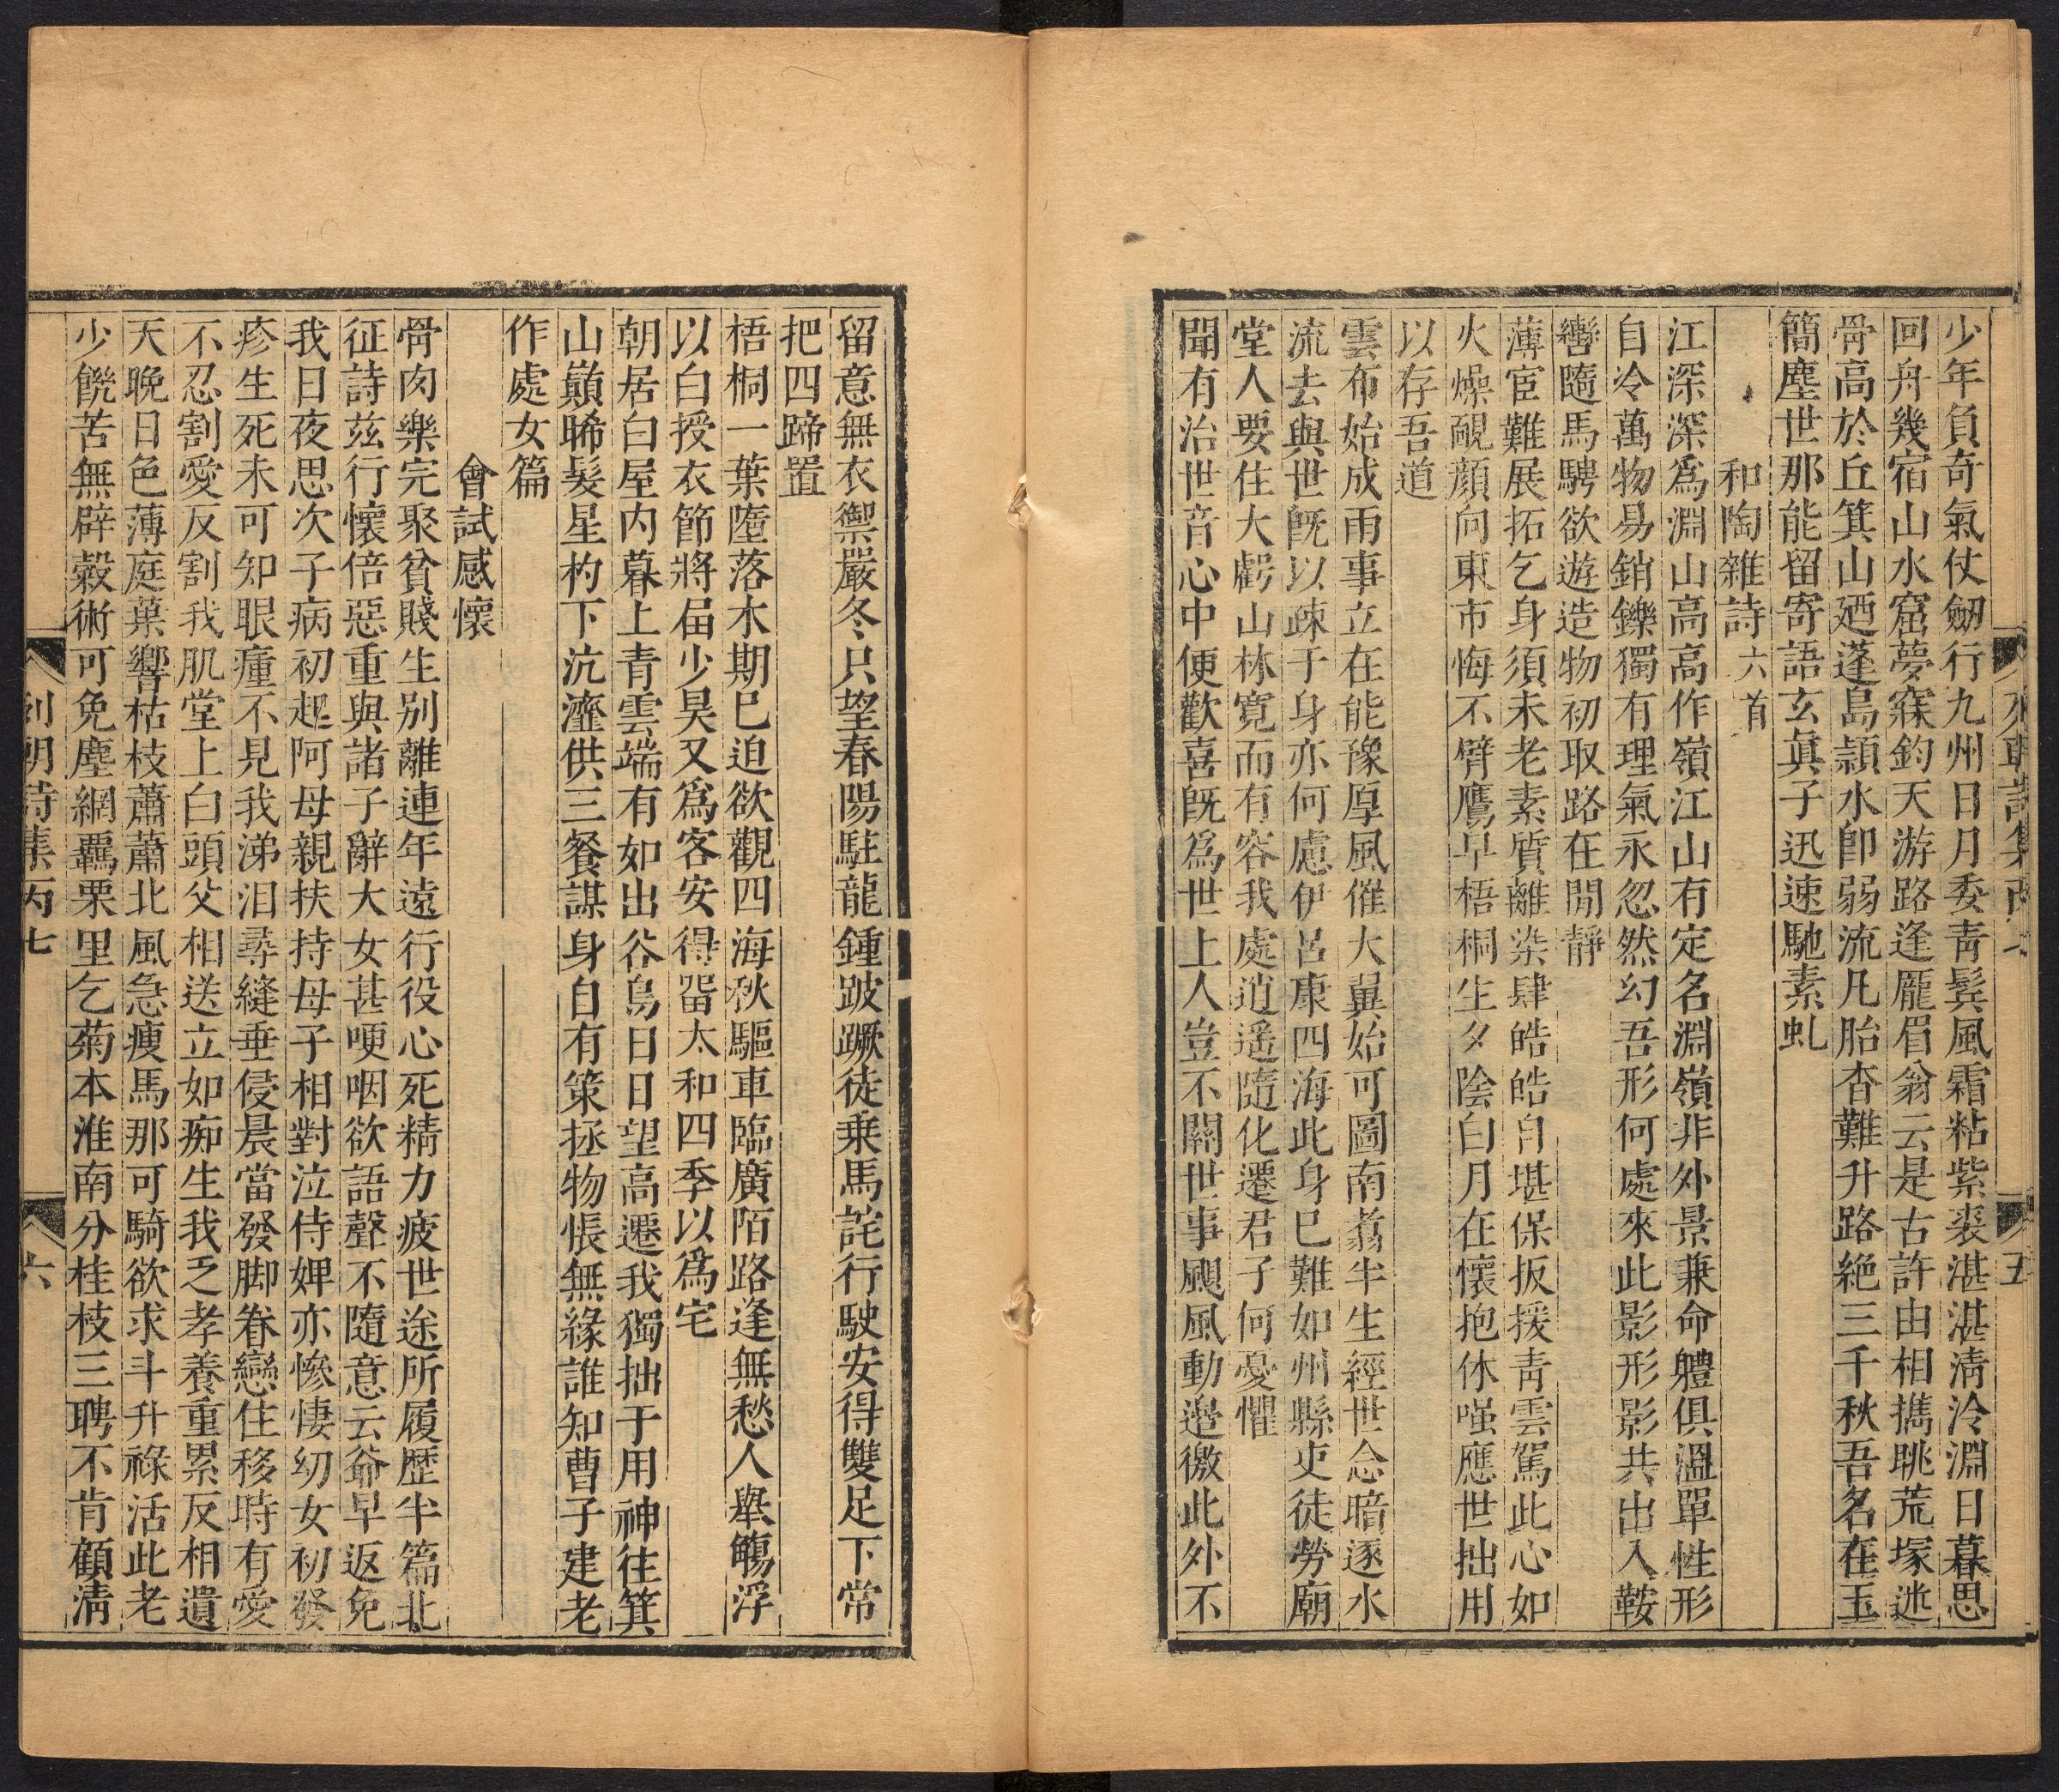 少年負奇氣仗劒行九州日月委青鬂風霜粘紫裘湛湛清泠淵日暮思
回舟幾宿山水窟夢寐釣天游路逢龎眉翁云是古許由相攜眺荒塚逃
骨高於丘箕山廼蓬島潁水卽弱流凡胎杳難升路絶三千秋吾名在玉
簡塵世那能留寄語玄眞子迅速馳素虬
和陶雜詩六首
江深深爲淵山高高作嶺江山有定名淵嶺非外景兼命軆俱溫單性形
自冷萬物易銷鑠獨有理氣永忽然幻吾形何處來此影形影共出入鞍
轡隨馬騁欲遊造物初取路在閒靜
薄宦難展拓乞身須未老素質離染肆皓皓自堪保扳援靑雲駕此心如
火燥靦顏向東市悔不臂鷹早梧桐生夕陰白月在懷抱休嗤應世拙用
以存吾道
雲布始成雨事立在能豫厚風催大翼始可圖南翥半生經世念暗逐水
流去與世旣以疎于身亦何慮伊呂康四海此身巳難如州縣吏徒勞廟
堂人要住大虧山林寛而有容我處逍遥隨化遷君子何憂懼
聞有治世音心中便歡喜旣爲世上人豈不關世事颶風動邉徼此外不
五
留意無衣禦嚴冬只望春陽駐龍鍾跛蹶徒乗馬詫行駛安得雙足下常
把四蹄置
梧桐一葉墮落木期巳迫欲觀四海秋驅車臨廣陌路逢無愁人舉觴浮
以白授衣節將屆少昊又爲客安得畱太和四季以爲宅
朝居白屋内暮上青雲端有如出谷鳥日日望高遷我獨拙于用神往箕
山巔晞髮星杓下沆瀣供三餐謀身自有策拯物悵無緣誰知曹子建老
作處女篇
會試感懷
骨肉樂完聚貧賤生别離連年遠行役心死精力疲世途所履歴半篇北
征詩玆行懷倍惡重與諸子辭大女甚哽咽欲語聲不隨意云爺早返免
我日夜思次子病初起阿母親扶持母子相對泣侍婢亦慘悽幼女初發
疹生死未可知眼瘇不見我涕泪尋縫垂侵晨當發脚眷戀住移時有愛
不忍割愛反割我肌堂上白頭父相送立如痴生我乏孝養重累反相遺
天晩日色薄庭葉響枯枝蕭蕭北風急瘦馬那可騎欲求斗升祿活此老
少饑苦無辟榖術可免塵網羈栗里乞菊本淮南分桂枝三聘不肯顧淸
列朝詩集丙七
六